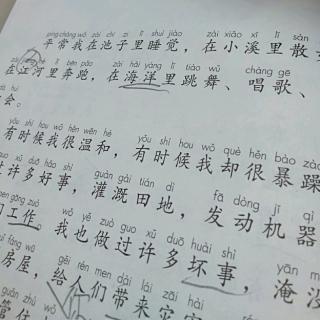 píng cháng wǒ zài chí zi lǐ shuì jiào zài xiǎo xī lǐ sàn
平常我在池子里睡觉，在小溪里散
zài jiāng hé lǐ bēn pǎo zài hǎi yáng lǐ tiào wǔ chàng gē
在江河里奔跑，在海洋里跳舞、唱歌、
huì
会。
yǒu shí hou wǒ hěn wēn hé yǒu shí hou wǒ què hěn bào zào
有时候我很温和，有时候我却很暴躁
guò xǔ duō hǎo shì guàn gài tián dì fā dòng jī qì
过许多好事，灌溉田地，发动机器
men gōng zuò wǒ yě zuò guo xǔ duō huài shì yān mò
们工作。我也做过许多坏事，淹没
fáng wū gěi rén men dài lái zāi hài
房屋，给人们带来灾害
guǎn zhù wǒ
管住